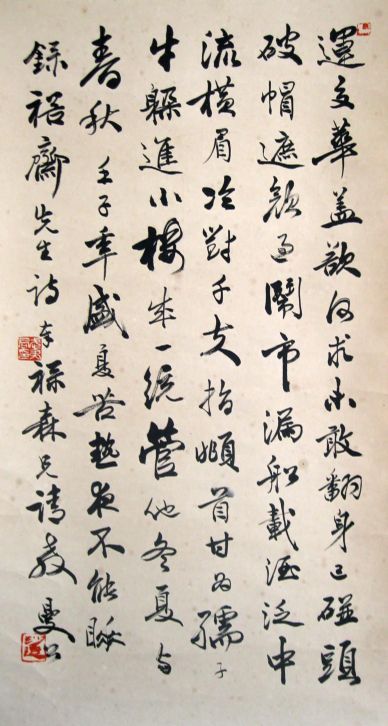 運交華蓋欲何求未敢翻身已碰頭
破帽遮顏過鬧市漏船載酒泛中
流橫眉冷對千夫指頫首甘為孺子
牛躲進小樓成一統管他冬夏與
春秋 壬子秊盛夏苦熱夜不能眠
錄裕齋先生詩奉 森兄請教 曼公